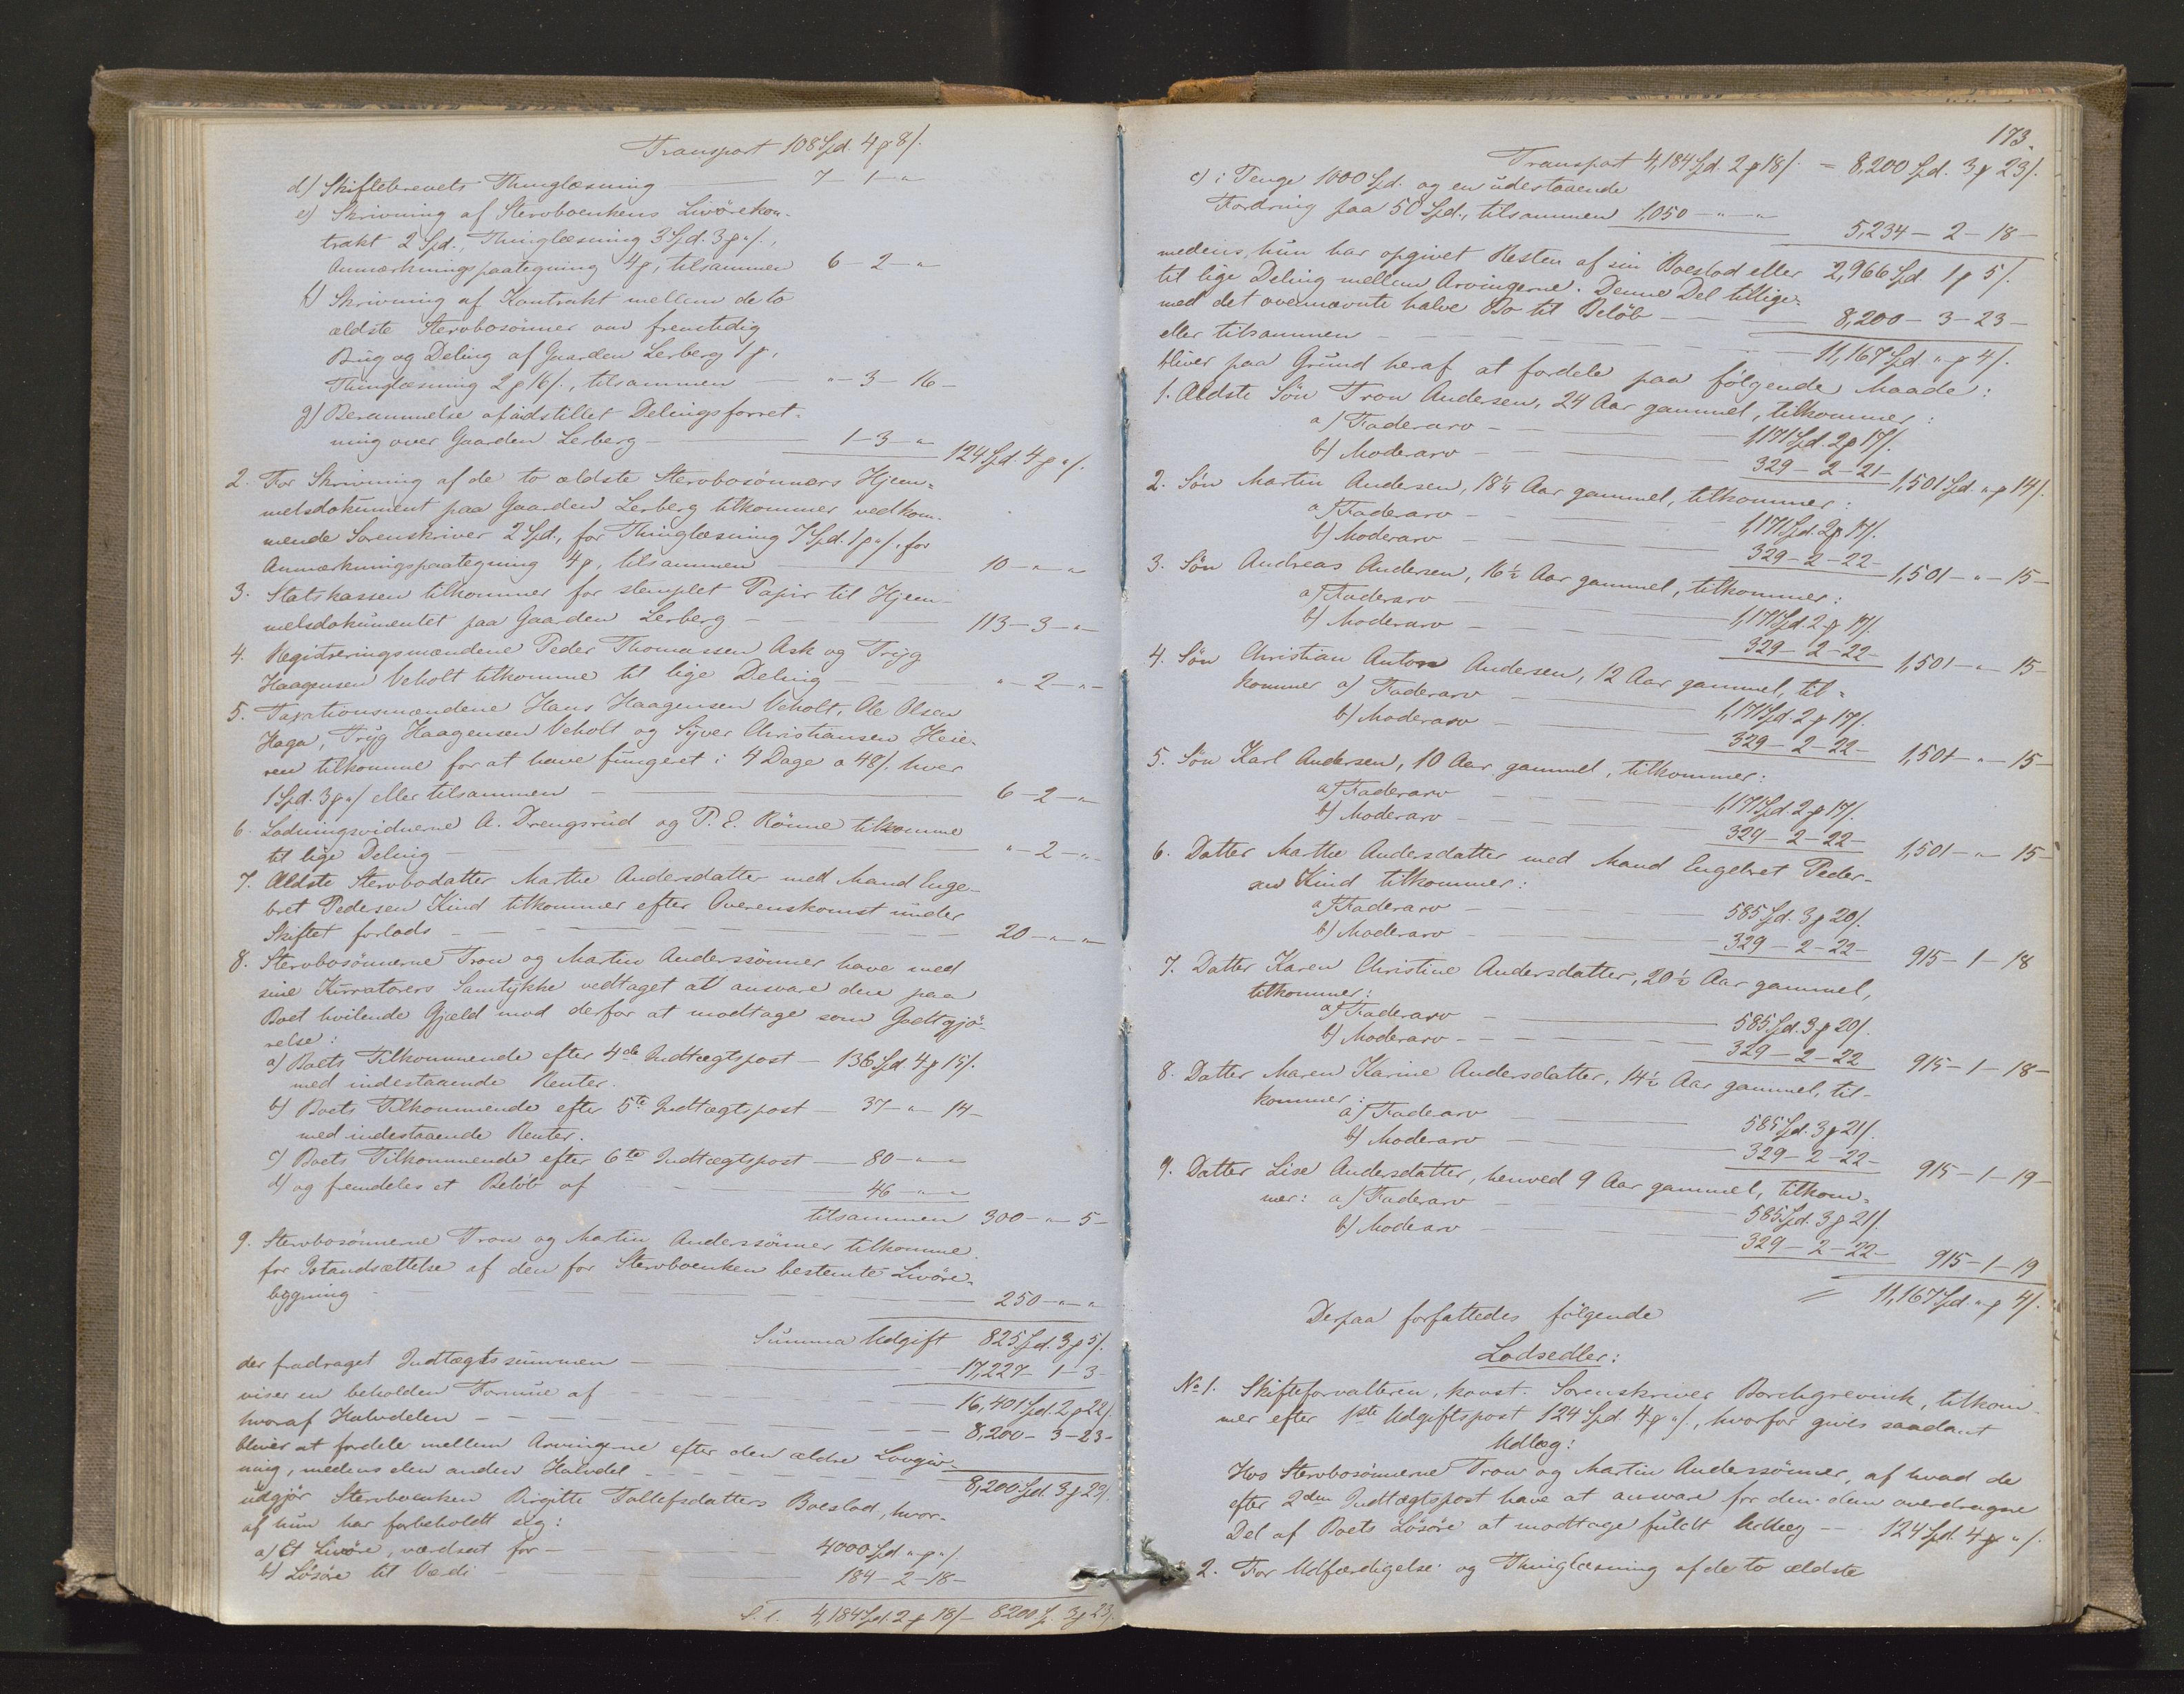 Transport 108 Spd. 4 ₰ 8 /.
d) Skiftebrevets Thinglæsning — 7 - 1 - "
e) Skrivning af Stervboenkens Livörekon-
trakt 2 Spd., Thinglæsning 3 Spd. 3 ₰ " /.,
Anmærkningspaategning 4 ₰, tilsammen 6 - 2 - "
f) Skrivning af Kontrakt mellem de to
ældste Stervbosönner om fremtidig
Brug og Deling af Gaarden Lerberg 1 ₰,
Thinglæsning 2 ₰ 16 /., tilsammen — " - 3 - 16 -
g) Berammelse af udstillet Delingsforret-
ning over Gaarden Lerberg — 1 - 3 - " 124 Spd. 4 ₰ " /.
2. For Skrivning af de to ældste Stervbosönners Hjem=
melsdokument paa Gaarden Lerberg tilkommer vedkom-
mende Sorenskriver 2 Spd., for Thinglæsning 7 Spd. 1 ₰ " /., for
Anmærkningspaategning 4 ₰, tilsammen — 10 - " - "
3. Statskassen tilkommer for stemplet Papir til Hjem-
melsdokumentet paa Gaarden Lerberg — 113 - 3 - " -
4. Registreringsmændene Peder Thomassen Ask og Tryg
Haagensen Veholt tilkomme til lige Deling — " - 2 - " -
5. Taxationsmændene Hans Haagensen Veholt, Ole Olsen
Haga, Tryg Haagensen Veholt og Syver Christiansen Heie-
ren tilkomme for at have fungeret i 4 Dage a 48 /. hver
1 Spd. 3 ₰ " / eller tilsammen — 6 - 2 - "
6. Lodningsvidnerne A. Drengsrud og P. E. Rönne tilkomme
til lige Deling — " - 2 - " -
7. Ældste Stervbodatter Marthe Andersdatter med Mand Enge-
bret Pedersen Kind tilkommer efter Overenskomst under
Skiftet forlods — 20 - " - "
8. Stervbosönnerne Tron og Martin Anderssönner have med
sine Kurratorers Samtykke vedtaget at ansvare den paa
Boet hvilende Gjæld mod derfor at modtage som Godtgjö-
relse:
a) Boets Tilkommende efter 4de Indtægtspost — 136 Spd. 4 ₰ 15 /.
med indestaaende Renter.
b) Boets Tilkommende efter 5te Indtægtspost — 37 - " - 14 -
med indestaaende Renter.
c) Boets Tilkommende efter 6te Indtægtspost — 80 - " - "
d) og fremdeles et Belöb af — 46 - " - "
tilsammen 300 - " - 5 -
9. Stervbosönnerne Tron og Martin Anderssönner tilkomme
for Istandsættelse af den for Stervboenken bestemte Livöre-
bygning — 250 - " - "
Summa Udgift 825 Spd. 3 ₰ 5 /.
der fradraget Indtægtssummen — 17,227 - 1 - 3 -
viser en beholden Formue af — 16,401 Spd. 2 ₰ 22 /.
hvoraf Halvdelen — 8,200 - 3 - 23 -
bliver at fordele mellem Arvingerne efter den ældre Lovgiv-
ning, medens den anden Halvdel — 8,200 Spd. 3 ₰ 23 /.
udgjör Stervboenken Birgitte Tollefsdatters Boeslod, hvor-
af hun har forbeholdt sig:
a) Et Livöre, værdsat for — 4000 Spd. " ₰ " /.
b) Lösöre til Værdi — 184 - 2 - 18 -
4,184 Spd. 2 ₰ 18 / - 8200 Sp. 3 ₰ 23 /.
173.
Transport 4,184 Spd. 2 ₰ 18 /. = 8,200 Spd. 3 ₰ 23 /.
c) i Penge 1000 Spd. og en udestaaende
Fordring paa 50 Spd., tilsammen 1,050 - " - " 5,234 - 2 - 18 -
medens hun har opgivet Resten af sin Boeslod eller 2,966 Spd. 1 ₰ 5 /.
til lige Deling mellem Arvingerne. Denne Del tillige-
med det ovennævnte halve Bo til Belöb — 8,200 - 3 - 23 -
eller tilsammen — 11,167 Spd. " ₰ 4 /.
bliver paa Grund heraf at fordele paa fölgende Maade:
1. Ældste Sön Tron Andersen, 24 Aar gammel, tilkommer:
a) Faderarv — 1,171 Spd. 2 ₰ 17 /.
b) Moderarv — 329 - 2 - 21 - 1,501 Spd. " ₰ 14 /.
2. Sön Martin Andersen, 18 1/4 Aar gammel, tilkommer:
a) Faderarv — 1,171 Spd. 2 ₰ 17 /.
b) Moderarv — 329 - 2 - 22 - 1,501 - " - 15 -
3. Sön Andreas Andersen, 16 1/2 Aar gammel, tilkommer:
a) Faderarv — 1,171 Spd. 2 ₰ 17 /.
b) Moderarv — 329 - 2 - 22 - 1,501 - " - 15 -
4. Sön Christian Anton Andersen, 12 Aar gammel, til=
kommer a) Faderarv — 1,171 Spd. 2 ₰ 17 /.
b) Moderarv — 329 - 2 - 22 - 1,501 - " - 15 -
5. Sön Karl Andersen, 10 Aar gammel, tilkommer:
a) Faderarv — 1,171 Spd. 2 ₰ 17 /.
b) Moderarv — 329 - 2 - 22 - 1,501 - " - 15 -
6. Datter Marthe Andersdatter med Mand Engebret Peder-
sen Kind tilkommer:
a) Faderarv — 585 Spd. 3 ₰ 20 /.
b) Moderarv — 329 - 2 - 22 - 915 - 1 - 18
7. Datter Karen Christine Andersdatter, 20 1/2 Aar gammel,
tilkommer:
a) Faderarv — 585 Spd. 3 ₰ 20 /.
b) Moderarv — 329 - 2 - 22 915 - 1 - 18 -
8. Datter Maren Karine Andersdatter, 14 1/2 Aar gammel, til-
kommer:
a) Faderarv — 585 Spd. 3 ₰ 21 /.
b) Moderarv — 329 - 2 - 22 - 915 - 1 - 19 -
9. Datter Lise Andersdatter, henved 9 Aar gammel, tilkom=
mer: a) Faderarv — 585 Spd. 3 ₰ 21 /.
b) Moderarv — 329 - 2 - 22 - 915 - 1 - 19
= 11,167 Spd. " ₰ 4 /.
Derpaa forfattedes fölgende
Lodsedler:
No 1. Skifteforvalteren, konst. Sorenskriver Borchgrevink, tilkom-
mer efter 1ste Udgiftspost 124 Spd. 4 ₰ " /., hvorfor gives saadant
Udlæg:
Hos Stervbosönnerne Tron og Martin Anderssönner, af hvad de
efter 2den Indtægtspost have at ansvare for den dem overdragne
Del af Boets Lösöre at modtage fuldt Udlæg — 124 Spd. 4 ₰ " /.
2. For Udfærdigelse og Thinglæsning af de to ældste